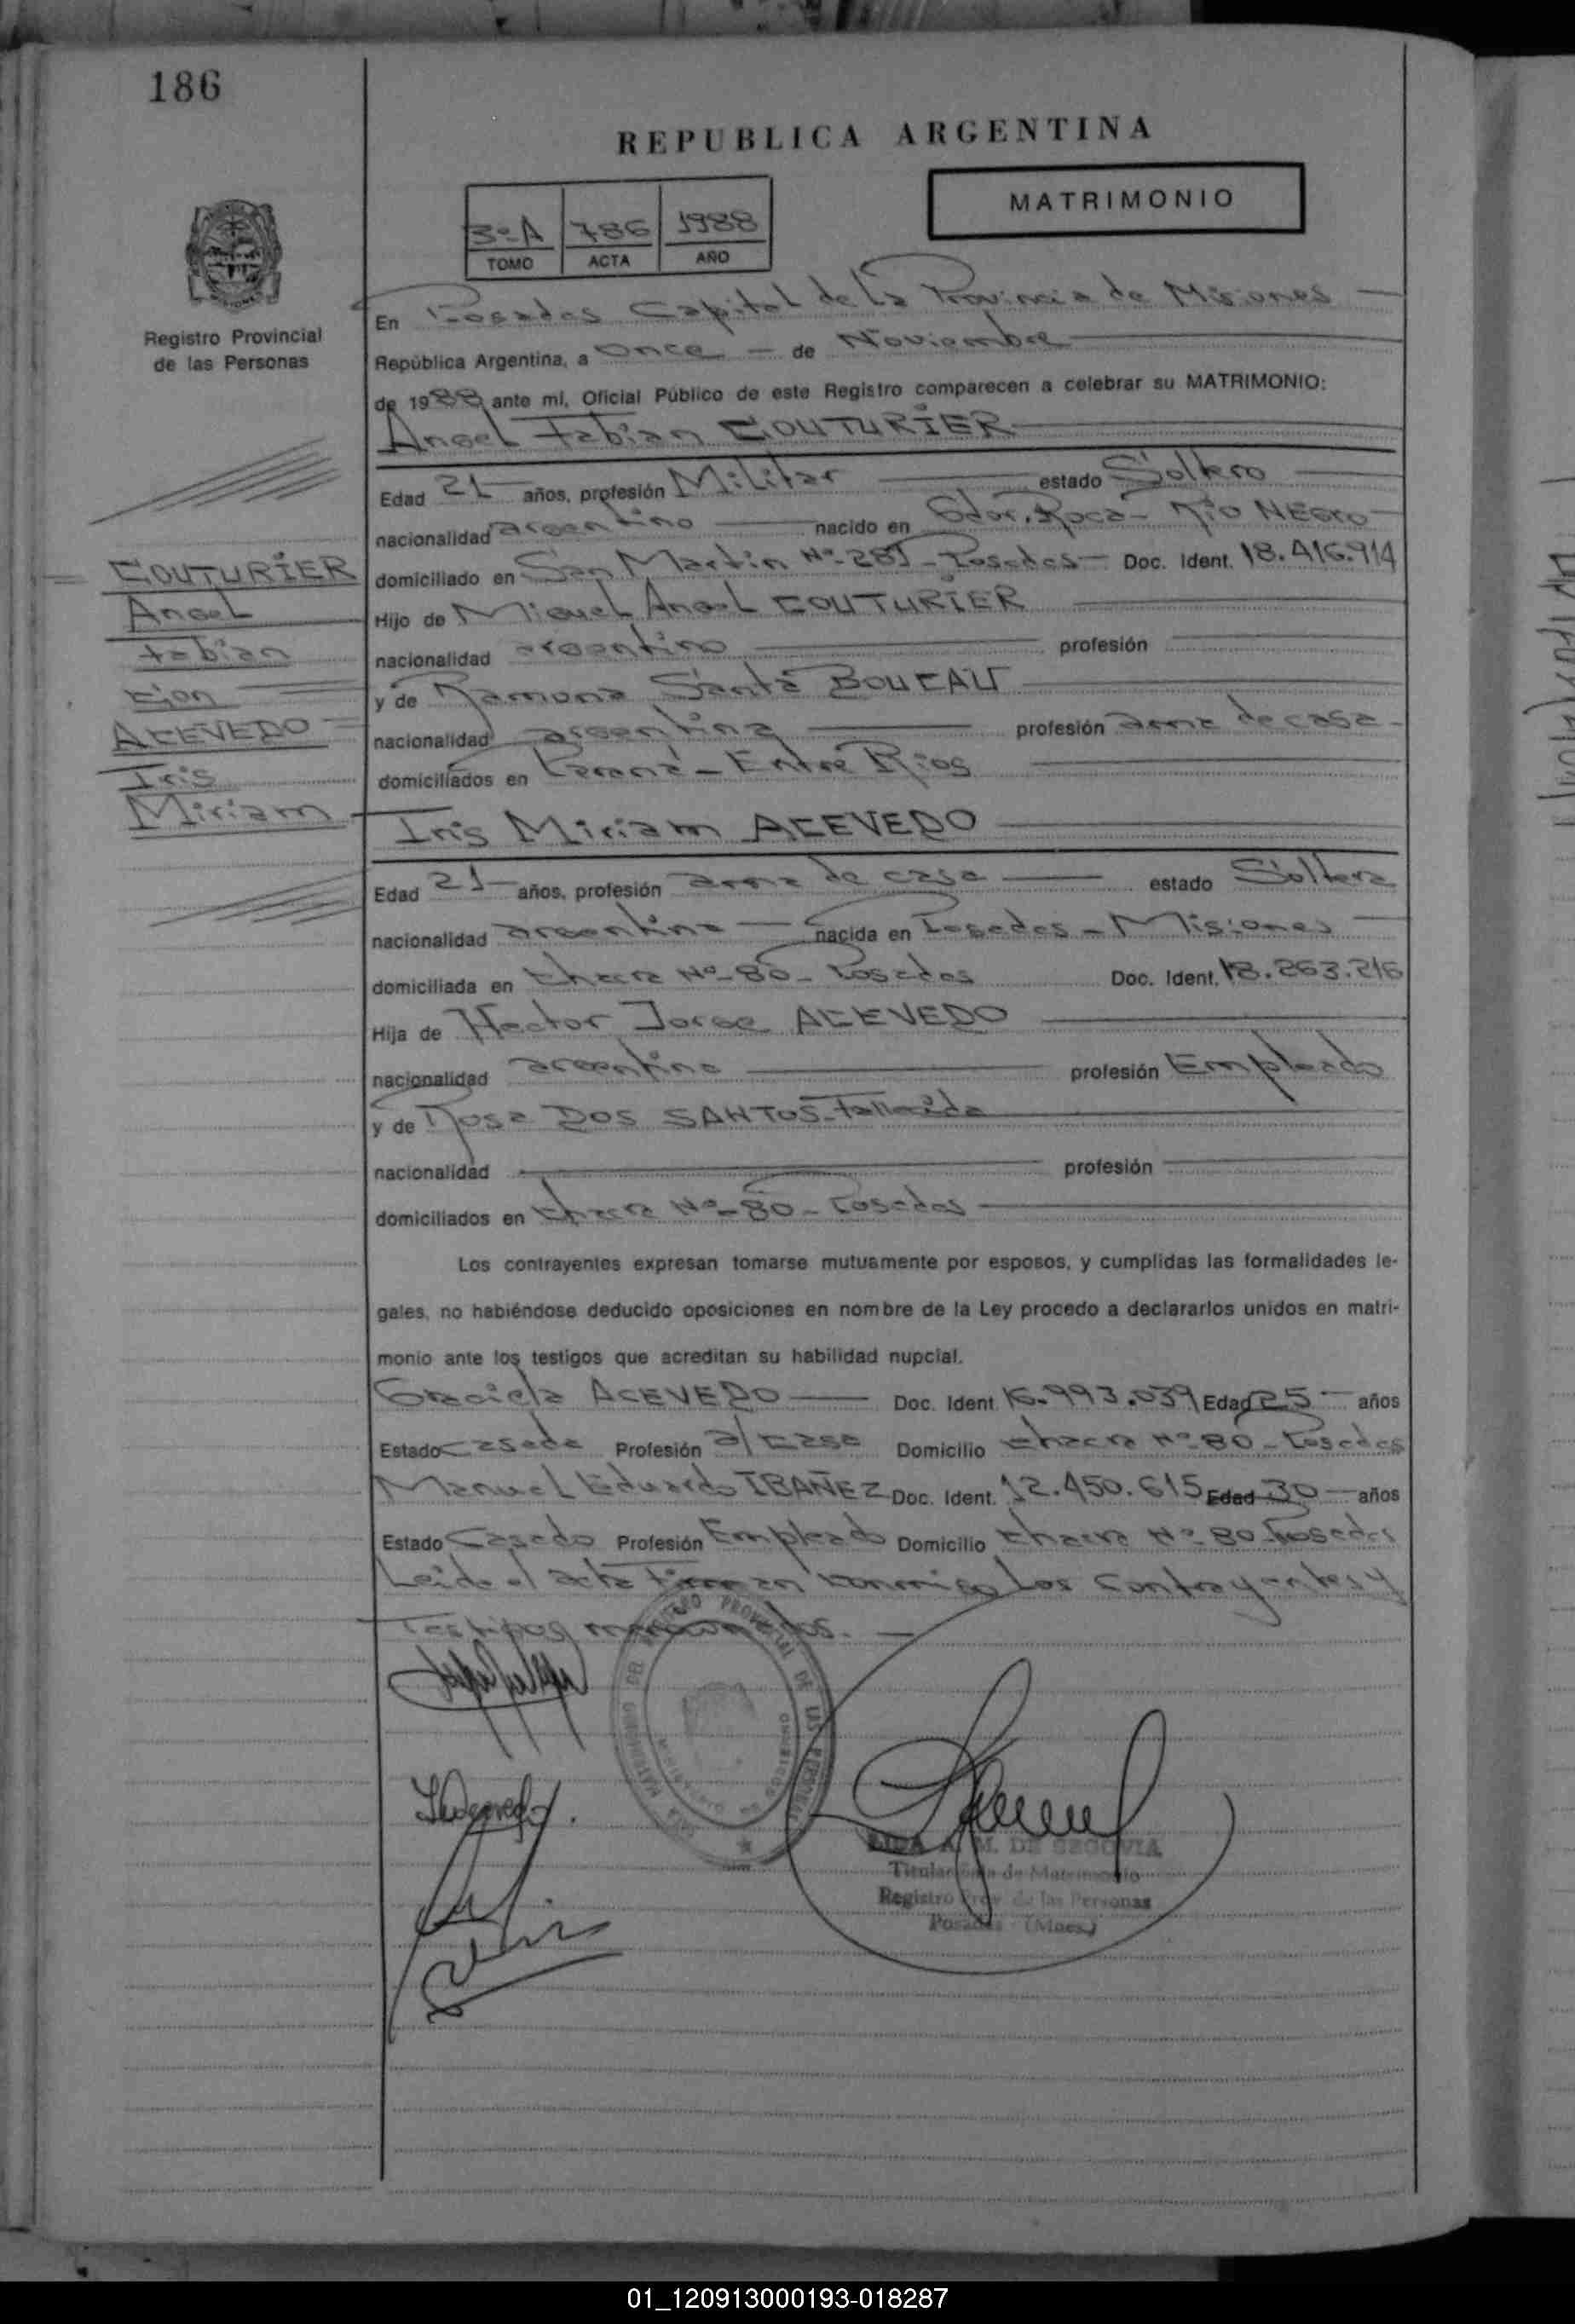 186
REPUBLICA ARGENTINA
MATRIMONIO
3º-A 786 1988
TOMO ACTA AÑO
Registro Provincial
de las Personas
En Posadas Capital de La Provincia de Misiones
República Argentina, a once de Noviembre
de 1988 ante mí, Oficial Público de este Registro comparecen a celebrar su MATRIMONIO:
Angel Fabian COUTURIER
Edad 21 años, profesión Militar estado Soltero
nacionalidad argentino nacido en Gdor. Roca - Río NEGro
COUTURIER
domiciliado en San Martín Nº-281 - Posadas - Doc. Ident. 18.416.914
Angel
Hijo de Miguel Angel COUTURIER
Fabian
nacionalidad argentino profesión
con
y de Ramona Santa BOUCAU
ACEVEDO
nacionalidad argentina profesión ama de casa
Iris
domiciliados en Paraná - Entre Ríos
Miriam
Iris Miriam ACEVEDO
Edad 21 años, profesión ama de casa estado Soltera
nacionalidad argentina nacida en Posadas - Misiones
domiciliada en Chacra Nº-80 - Posadas Doc. Ident. 18.263.216
Hija de Hector Jorge ACEVEDO
nacionalidad argentino profesión Empleado
y de Rosa DOS SANTOS - Fallecida
nacionalidad profesión
domiciliados en Chacra Nº-80 - Posadas
Los contrayentes expresan tomarse mutuamente por esposos, y cumplidas las formalidades le-
gales, no habiéndose deducido oposiciones en nombre de la Ley procedo a declararlos unidos en matri-
monio ante los testigos que acreditan su habilidad nupcial.
Graciela ACEVEDO Doc. Ident. 16.993.039 Edad 25 años
Estado Casada Profesión a/casa Domicilio Chacra Nº 80 - Posadas
Manuel Eduardo IBAÑEZ Doc. Ident. 12.450.615 Edad 30 años
Estado Casado Profesión Empleado Domicilio Chacra Nº-80 - Posadas
Leida el acta Firman conmigo Los Contrayentes y
Testigos mencionados. -
A. M. DE SEGOVIA
Titular de Matrimonio
Registro Prov. de las Personas
Posadas (Mnes.)
01_120913000193-018287